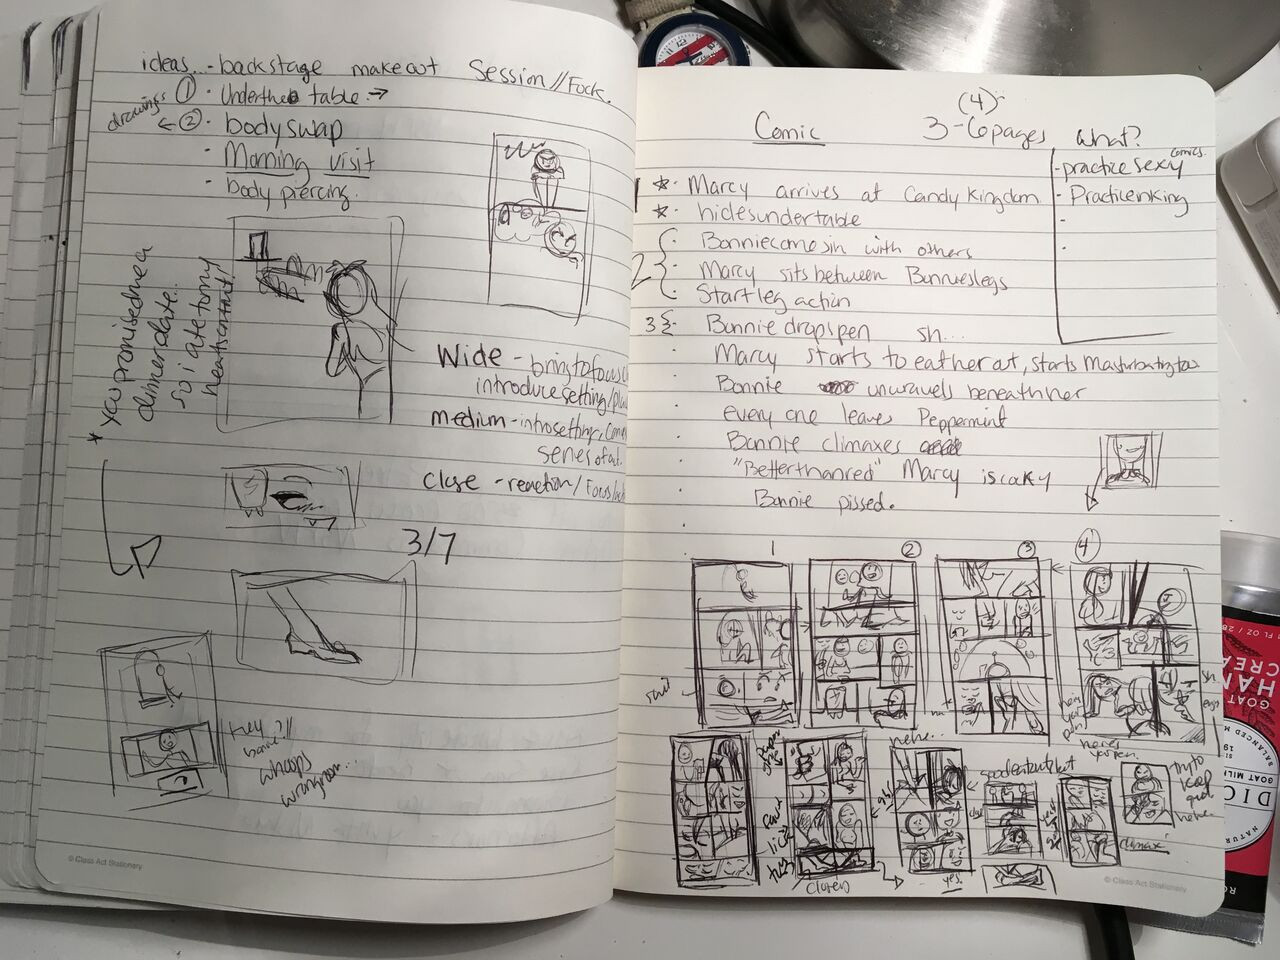 ideas.. - backstage makeout session // Fuck.
drawings ① · Underthe table →
← ② · bodyswap
· Morning visit
· body piercing.
* you promised me a
dinner date..
so i ate tomy
heartscontent!
Wide - bring to focus
introduce setting/
medium - intro setting,
series of act.
Close - reaction/Focus
3/7
Hey
bonnie!!
whoops
wrong room...
© Class Act Stationery
(4)
Comic 3-6 pages What?
- practice sexy comics.
- Practice inking
1 * · Marcy arrives at Candy Kingdom
* · hides under table
2 { · Bonnie comes in with others
· Marcy sits between Bonnies legs
· Start leg action
3 { · Bonnie drops pen sh...
· Marcy starts to eat her out, starts Masturbating too
· Bonnie unravels beneath her
· every one leaves Peppermint
· Bonnie climaxes
· "Better than red" Marcy is cocky
· Bonnie pissed.
1 ② ③ ④
here
your
pen!
sh
heres
yo pen.
hehe...
try to
keep
quiet
hehe..
climax
yes.
© Class Act Stationery
FL OZ / 28
HAN
CREA
GOAT
BALANCED
GOAT MILK
DIC
NATUR
SI
19